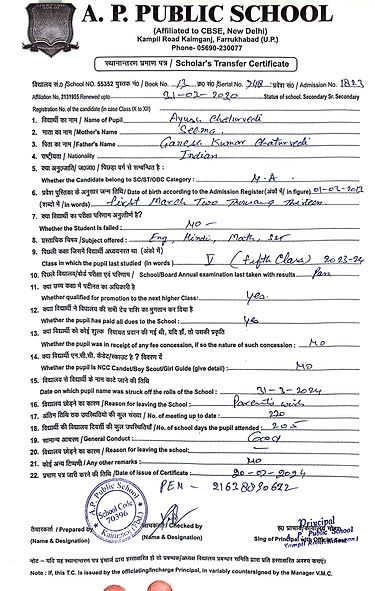 A. P. PUBLIC SCHOOL
(Affiliated to CBSE, New Delhi)
Kampil Road Kaimganj, Farrukhabad (U.P.)
Phone- 05690-230077
स्थानान्तरण प्रमाण पत्र / Scholar's Transfer Certificate
विद्यालय सं० / School NO. 55352 पुस्तक नं० / Book No. 13 क्र० सं०/Serial No. 248 प्रवेश सं० / Admission No. 1823
Affiliation No. 2131955 Renewed upto 31-03-2030 Status of school. Secondary Sr. Secondary
Registration No. of the candidate (in case Class IX to XII)
1. विद्यार्थी का नाम / Name of Pupil Ayush Chaturvedi
2. माता का नाम / Mother's Name Seema
3. पिता का नाम / Father's Name Ganesh Kumar Chaturvedi
4. राष्ट्रीयता / Nationality Indian
5. क्या अनु०जाति/ ज०जा० / पिछड़ा वर्ग से सम्बन्धित है :
Whether the Candidate belong to SC/ST/OBC Category : N.A.
6. प्रवेश पुस्तिका के अनुसार जन्म तिथि/ Date of birth according to the Admission Register(अंकों में/ in figure) 01-03-2013
(शब्दों में / in words) First March Two Thousand Thirteen
7. क्या विद्यार्थी का परीक्षा परिणाम अनुत्तीर्ण है?
Whether the Student is failed : NO
8. प्रस्तावित विषय / Subject offered : Eng, Hindi, Math,
9. पिछली कक्षा जिसमें विद्यार्थी अध्ययनरत था (अंकों में)
Class in which the pupil last studied (in words) V (fifth Class) 2023-24
10. पिछले विद्यालय/बोर्ड परीक्षा एवं परिणाम / School/Board Annual examination last taken with results Pass
11. क्या उच्च कक्षा में पदोन्नत का अधिकारी है
Whether qualified for promotion to the next higher Class: yes
12. क्या विद्यार्थी ने विद्यालय की सभी देय राशि का भुगतान कर दिया है
Whether the pupil has paid all dues to the School : yes
13. क्या विद्यार्थी को कोई शुल्क रियायत प्रदान की गई थी, यदि हाँ, तो उसकी प्रकृति
Whether the pupil was in receipt of any fee concession, if so the nature of such concession : NO
14. क्या विद्यार्थी एन.सी.सी. कैडेट/स्काउट है ? विवरण दें
Whether the pupil is NCC Candet/Boy Scout/Girl Guide (give detail) : NO
15. विद्यालय से विद्यार्थी के नाम काटे जाने की तिथि
Date on which pupil name was struck off the rolls of the School : 31-3-2024
16. विद्यालय छोड़ने का कारण / Reason for leaving the School : Parents wish
17. अंतिम तिथि तक उपस्थितियों की कुल संख्या / No. of meeting up to date : 220
18. विद्यार्थी की विद्यालय दिवसों की कुल उपस्थितियाँ / No. of school days the pupil attended : 205
19. सामान्य आचरण / General Conduct : Good
20. विद्यालय छोड़ने का कारण / Reason for leaving the school :
21. कोई अन्य टिप्पणी / Any other remarks : NO
22. प्रमाण पत्र जारी करने की तिथि / Date of issue of Certificate:
PEN - 21638030622
A. P. Public School
School Code
70396
Kaimganj (Fbd.)
तैयारकर्ता / Prepared by
(Name & Designation)
जाँचकर्ता / Checked by
(Name & Designation)
Principal
A. P. Public School
Sing of Principal with Office Seal
नोट – यदि यह स्थानान्तरण पत्र इंचार्ज द्वारा हस्ताक्षरित हो तो प्रबन्धक/अध्यक्ष विद्यालय प्रबन्धन समिति द्वारा प्रति हस्ताक्षरित अवश्य कराएं।
Note : If, this T.C. is issued by the officiating/Incharge Principal, in variably countersigned by the Manager V.M.C.